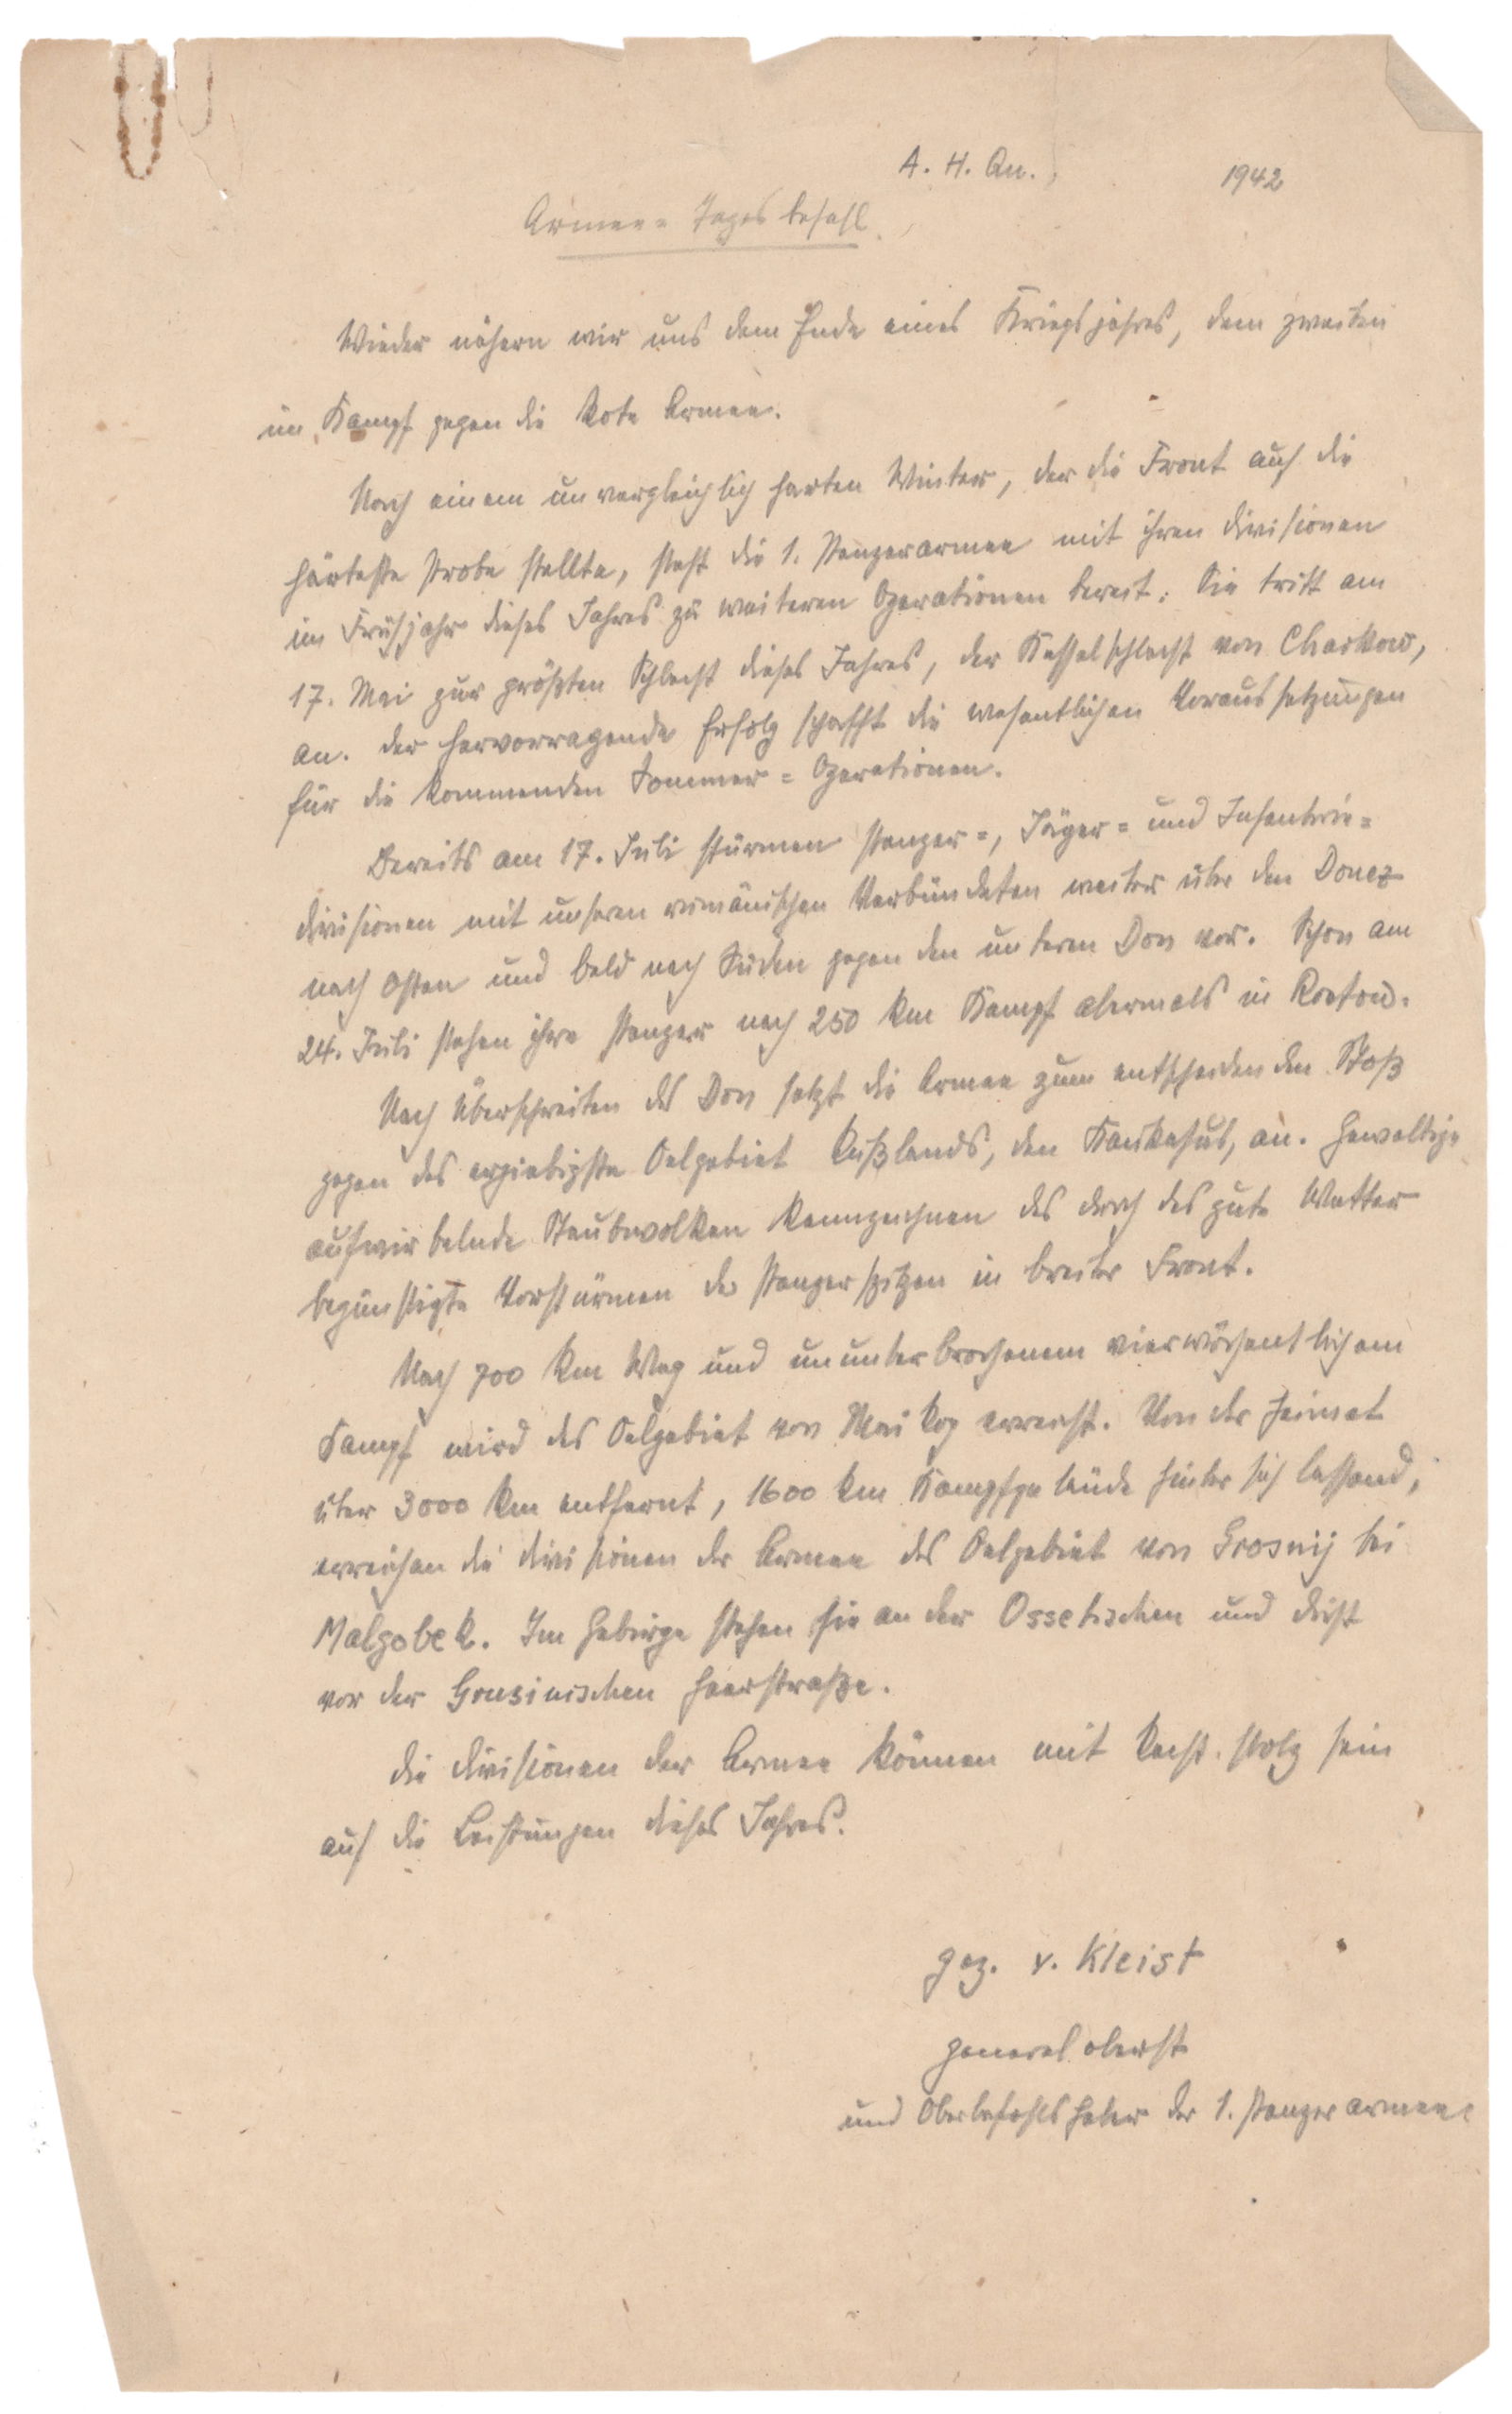 A. H. Qu., 1942
Armee = Tagesbefehl.
Wieder nähern wir uns dem Ende eines Kriegsjahres, dem zweiten
im Kampf gegen die Rote Armee.
Nach einem unvergleichlich harten Winter, der die Front auf die
härteste Probe stellte, steht die 1. Panzerarmee mit ihren Divisionen
im Frühjahr dieses Jahres zu weiteren Operationen bereit. Sie tritt am
17. Mai zur größten Schlacht dieses Jahres, der Kesselschlacht von Charkow,
an. Der hervorragende Erfolg schafft die wesentlichen Voraussetzungen
für die kommenden Sommer = Operationen.
Bereits am 17. Juli stürmen Panzer =, Jäger = und Infanterie =
divisionen mit unseren rumänischen Verbündeten weiter über den Donez
nach Osten und bald nach Süden gegen den unteren Don vor. Schon am
24. Juli stehen ihre Panzer nach 250 km Kampf abermals in Rostow.
Nach Überschreiten des Don setzt die Armee zum entscheidenden Stoß
gegen das ergiebigste Oelgebiet Rußlands, den Kaukasus, an. Gewaltige
aufwirbelnde Staubwolken kennzeichnen das durch das gute Wetter
begünstigte Vorstürmen der Panzerspitzen in breiter Front.
Nach 700 km Weg und ununterbrochenem vierwöchentlichem
Kampf wird das Oelgebiet von Maikop erreicht. Von der Heimat
über 3000 km entfernt, 1600 km Kampfgelände hinter sich lassend,
erreichen die Divisionen der Armee das Oelgebiet von Grosnij bei
Malgobek. Im Gebirge stehen sie an der Ossetischen und dicht
vor der Grusinischen Heerstraße.
Die Divisionen der Armee können mit Recht stolz sein
auf die Leistungen dieses Jahres.
gez. v. Kleist
Generaloberst
und Oberbefehlshaber der 1. Panzerarmee